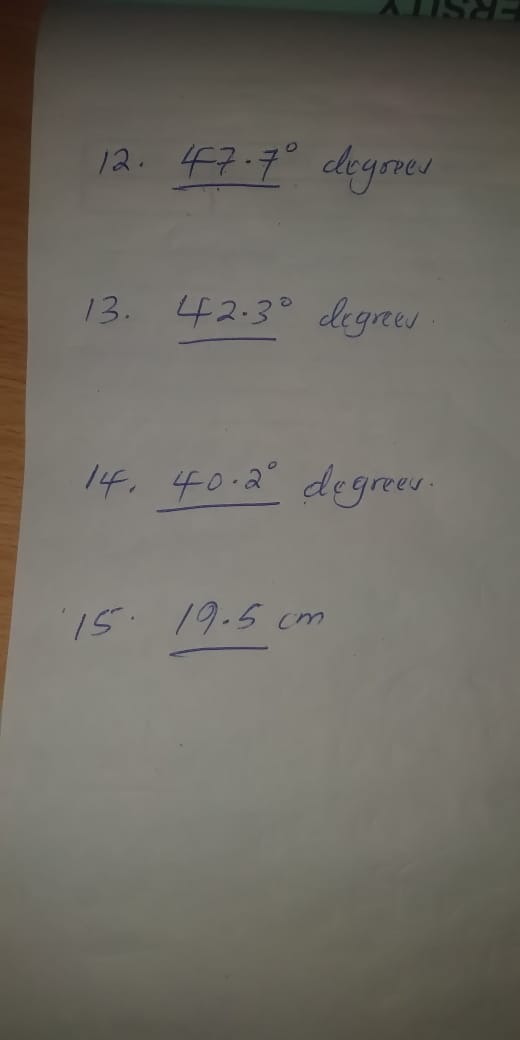 ERSITY
12. 47.7° degrees
13. 42.3° degrees.
14. 40.2° degrees.
15. 19.5 cm